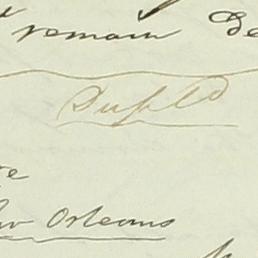 remain De
Dupld
e
Orleans